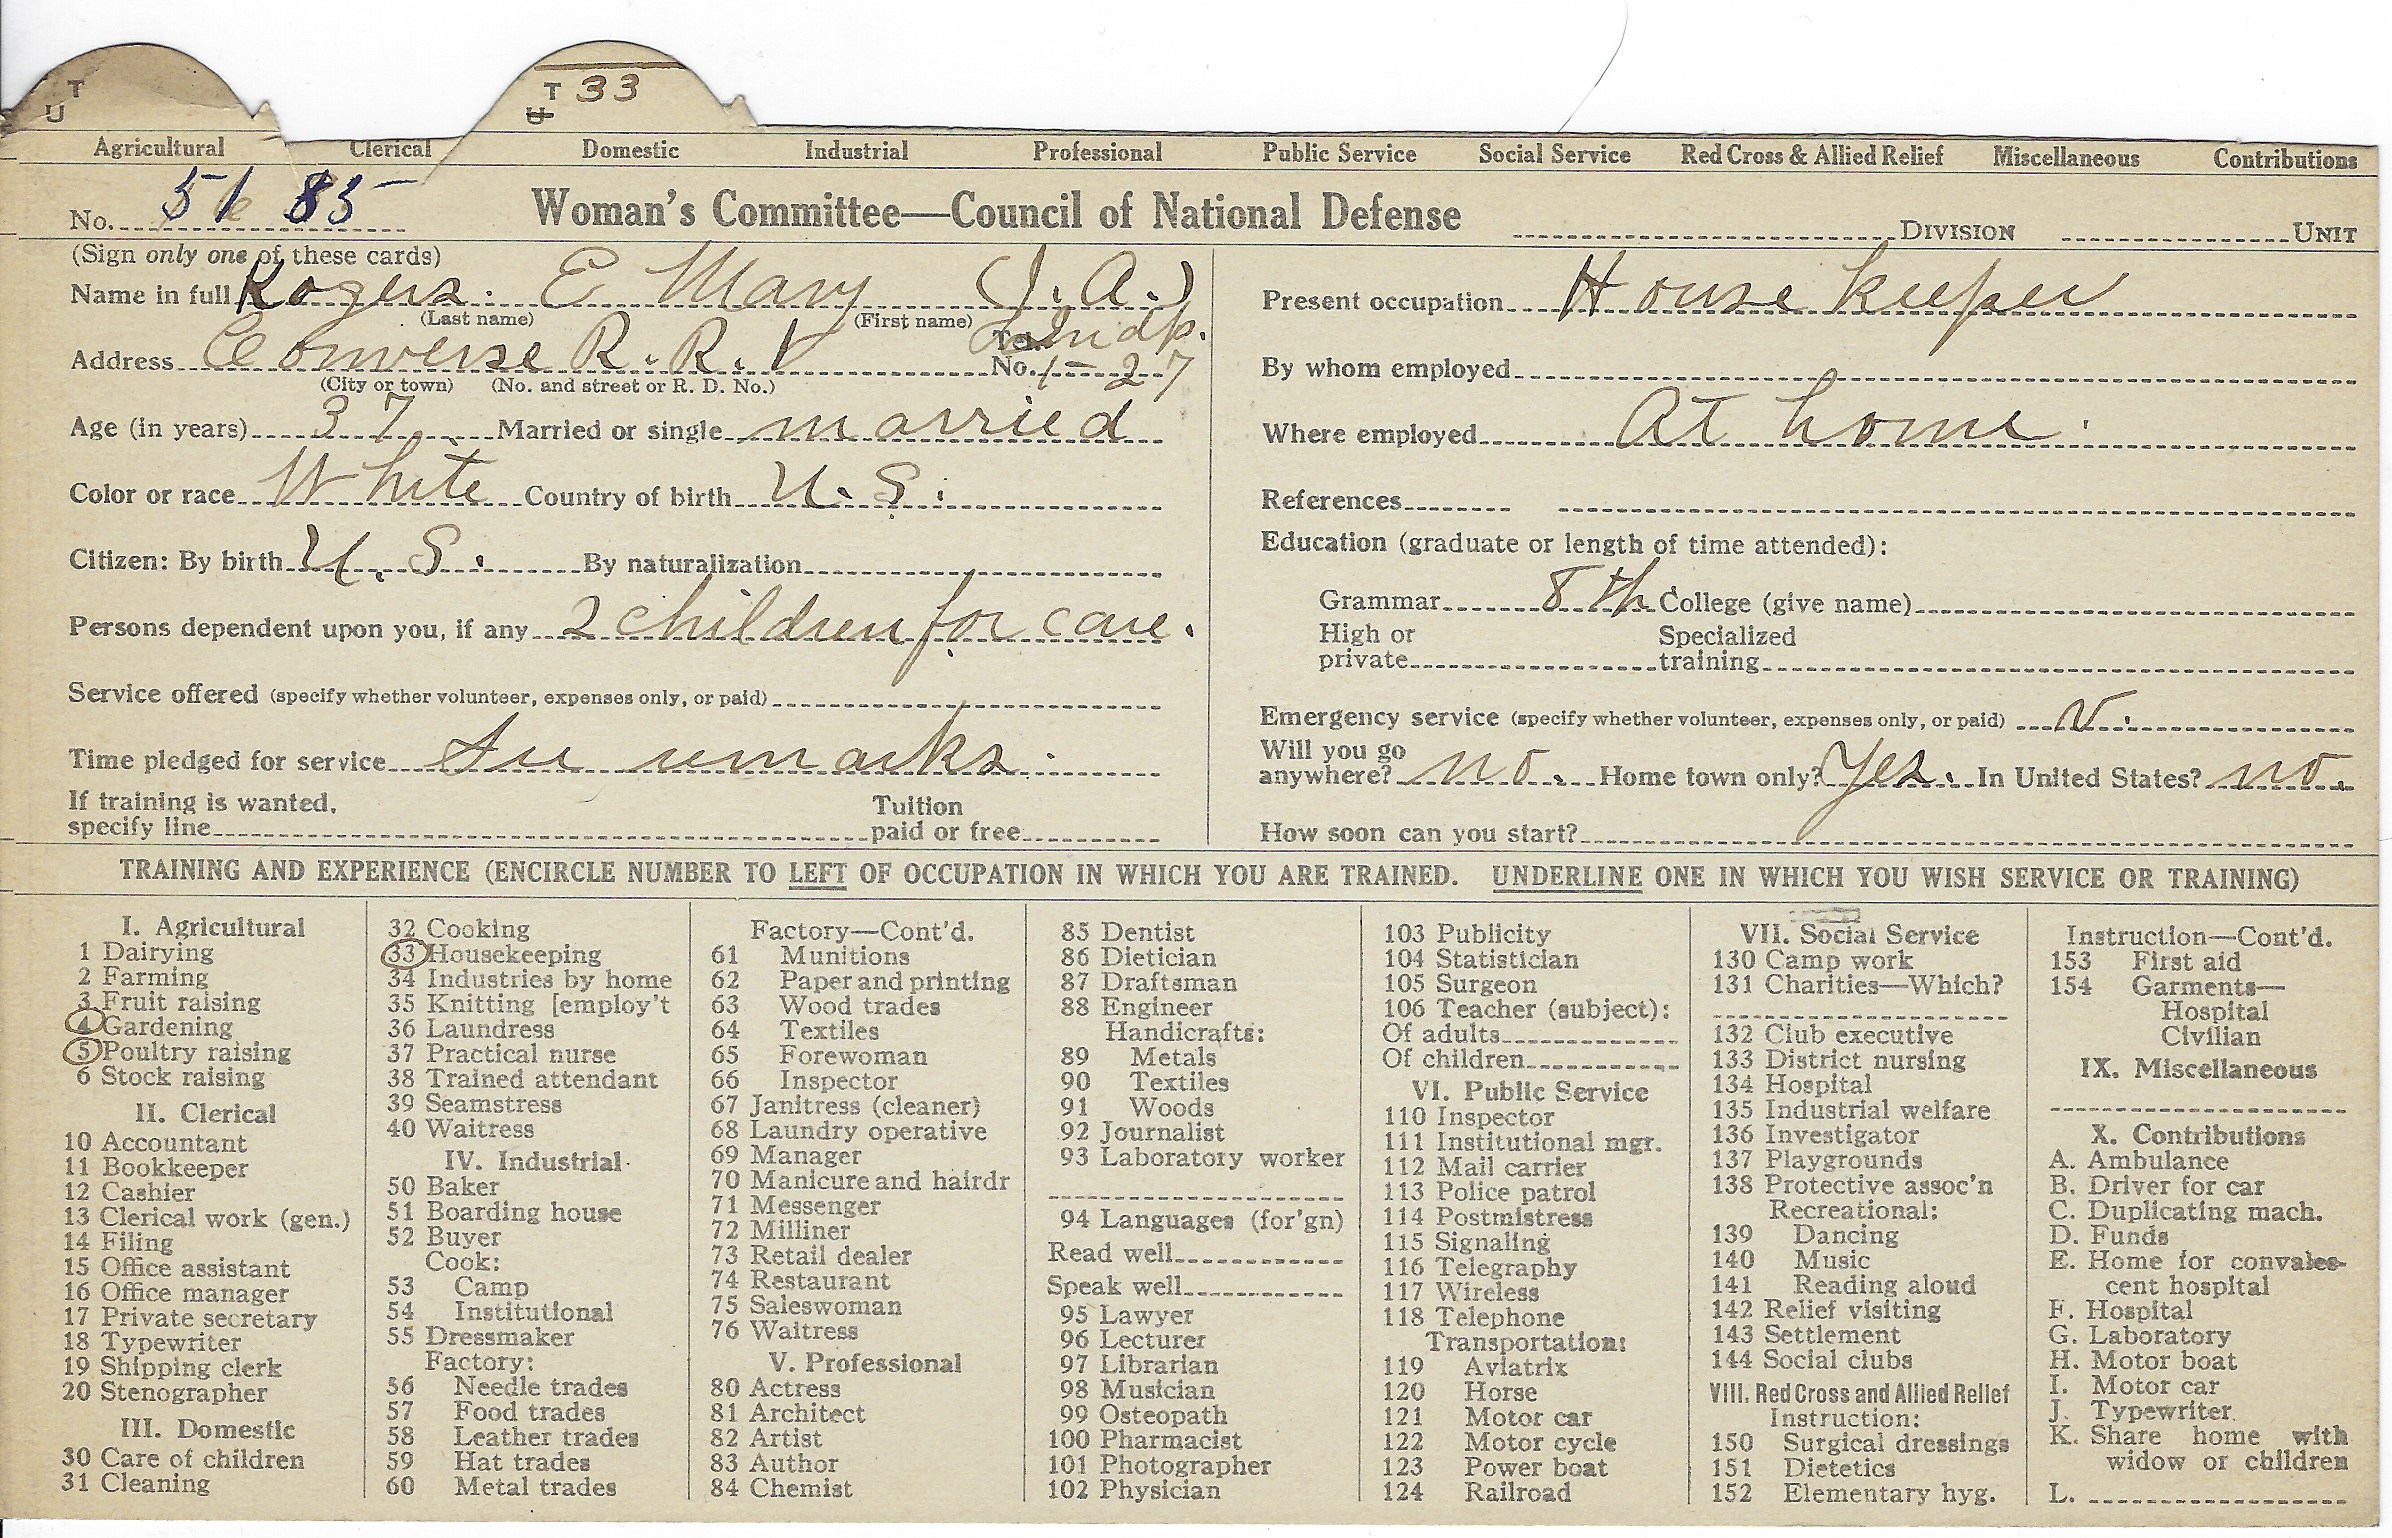 T
U
T 33
U
Agricultural Clerical Domestic Industrial Professional Public Service Social Service Red Cross & Allied Relief Miscellaneous Contributions
No. 51 85
Woman's Committee—Council of National Defense
DIVISION UNIT
(Sign only one of these cards)
Name in full Rogers. E Mary (J. A.)
(Last name) (First name)
Address Converse R. R. 1 Tel. No. Indp. 1-27
(City or town) (No. and street or R. D. No.)
Age (in years) 37. Married or single married
Color or race White Country of birth U. S.
Citizen: By birth U. S. By naturalization
Persons dependent upon you, if any 2 children for care.
Service offered (specify whether volunteer, expenses only, or paid)
Time pledged for service See remarks.
If training is wanted, specify line Tuition paid or free
Present occupation House keeper
By whom employed
Where employed At home.
References
Education (graduate or length of time attended):
Grammar 8 th College (give name)
High or private Specialized training
Emergency service (specify whether volunteer, expenses only, or paid) V.
Will you go anywhere? no. Home town only? Yes. In United States? no.
How soon can you start?
TRAINING AND EXPERIENCE (ENCIRCLE NUMBER TO LEFT OF OCCUPATION IN WHICH YOU ARE TRAINED. UNDERLINE ONE IN WHICH YOU WISH SERVICE OR TRAINING)
I. Agricultural
1 Dairying
2 Farming
3 Fruit raising
4 Gardening
5 Poultry raising
6 Stock raising
II. Clerical
10 Accountant
11 Bookkeeper
12 Cashier
13 Clerical work (gen.)
14 Filing
15 Office assistant
16 Office manager
17 Private secretary
18 Typewriter
19 Shipping clerk
20 Stenographer
III. Domestic
30 Care of children
31 Cleaning
32 Cooking
33 Housekeeping
34 Industries by home
35 Knitting [employ't
36 Laundress
37 Practical nurse
38 Trained attendant
39 Seamstress
40 Waitress
IV. Industrial
50 Baker
51 Boarding house
52 Buyer
Cook:
53 Camp
54 Institutional
55 Dressmaker
Factory:
56 Needle trades
57 Food trades
58 Leather trades
59 Hat trades
60 Metal trades
Factory—Cont'd.
61 Munitions
62 Paper and printing
63 Wood trades
64 Textiles
65 Forewoman
66 Inspector
67 Janitress (cleaner)
68 Laundry operative
69 Manager
70 Manicure and hairdr
71 Messenger
72 Milliner
73 Retail dealer
74 Restaurant
75 Saleswoman
76 Waitress
V. Professional
80 Actress
81 Architect
82 Artist
83 Author
84 Chemist
85 Dentist
86 Dietician
87 Draftsman
88 Engineer
Handicrafts:
89 Metals
90 Textiles
91 Woods
92 Journalist
93 Laboratory worker
94 Languages (for'gn)
Read well
Speak well
95 Lawyer
96 Lecturer
97 Librarian
98 Musician
99 Osteopath
100 Pharmacist
101 Photographer
102 Physician
103 Publicity
104 Statistician
105 Surgeon
106 Teacher (subject):
Of adults
Of children
VI. Public Service
110 Inspector
111 Institutional mgr.
112 Mail carrier
113 Police patrol
114 Postmistress
115 Signaling
116 Telegraphy
117 Wireless
118 Telephone
Transportation:
119 Aviatrix
120 Horse
121 Motor car
122 Motor cycle
123 Power boat
124 Railroad
VII. Social Service
130 Camp work
131 Charities—Which?
132 Club executive
133 District nursing
134 Hospital
135 Industrial welfare
136 Investigator
137 Playgrounds
138 Protective assoc'n
Recreational:
139 Dancing
140 Music
141 Reading aloud
142 Relief visiting
143 Settlement
144 Social clubs
VIII. Red Cross and Allied Relief
Instruction:
150 Surgical dressings
151 Dietetics
152 Elementary hyg.
Instruction—Cont'd.
153 First aid
154 Garments—
Hospital
Civilian
IX. Miscellaneous
X. Contributions
A. Ambulance
B. Driver for car
C. Duplicating mach.
D. Funds
E. Home for convales-
cent hospital
F. Hospital
G. Laboratory
H. Motor boat
I. Motor car
J. Typewriter
K. Share home with
widow or children
L.